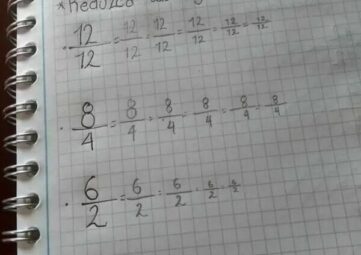 *Reduzco
12/12 = 12/12 = 12/12 = 12/12 = 12/12 = 12/12
· 8/4 = 8/4 = 8/4 = 8/4 = 8/4 = 8/4
· 6/2 = 6/2 = 6/2 = 6/2 = 6/2